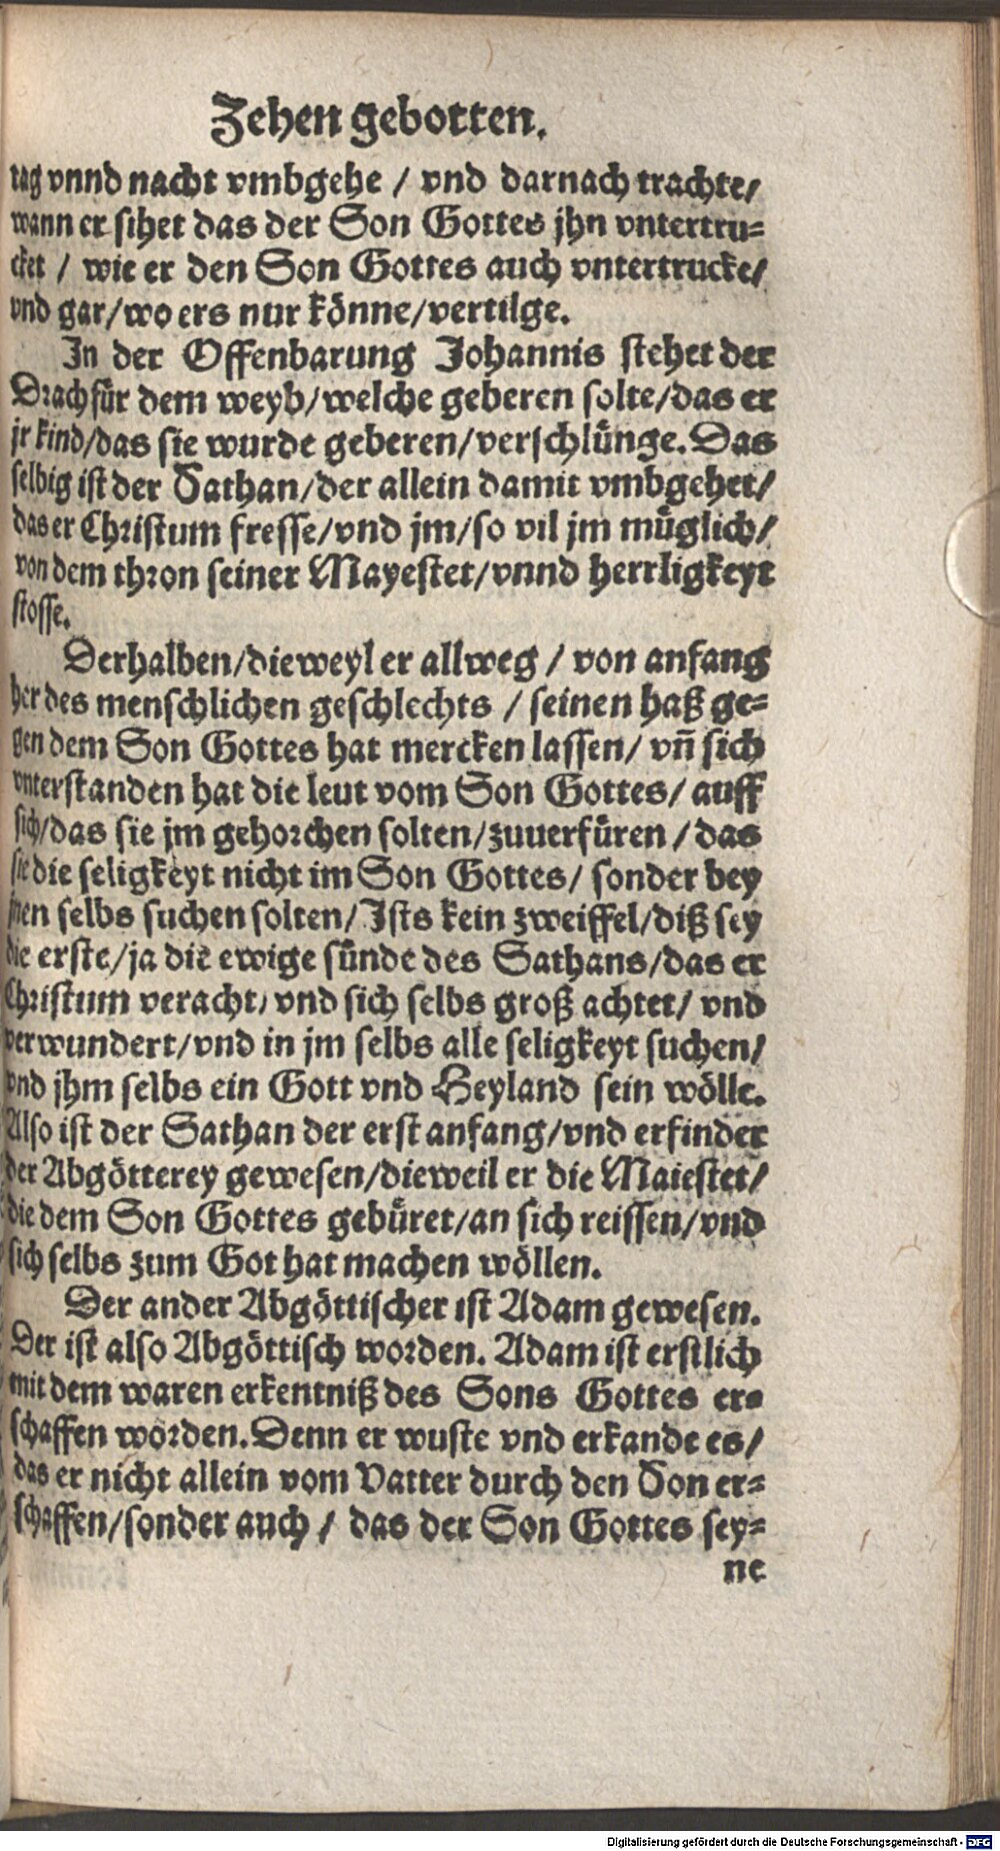 Zehen gebotten.
tag vnnd nacht vmbgehe / vnd darnach trachte/
wann er sihet das der Son Gottes jhn vntertru-
cket / wie er den Son Gottes auch vntertrucke/
vnd gar/wo ers nur könne/vertilge.
In der Offenbarung Johannis stehet der
Drach für dem weyb/welche geberen solte/das er
jr kind/das sie wurde geberen/verschlünge. Das
selbig ist der Sathan/der allein damit vmbgehet/
das er Christum fresse/vnd jm/so vil jm müglich/
von dem thron seiner Mayestet/vnnd herrligkeyt
stosse.
Derhalben/dieweyl er allweg / von anfang
her des menschlichen geschlechts / seinen haß ge-
gen dem Son Gottes hat mercken lassen/ vn̄ sich
vnterstanden hat die leut vom Son Gottes/ auff
sich/das sie jm gehorchen solten/zuuerfüren / das
sie die seligkeyt nicht im Son Gottes/ sonder bey
jnen selbs suchen solten/Ists kein zweiffel/diß sey
die erste/ja die ewige sünde des Sathans/das er
Christum veracht/ vnd sich selbs groß achtet/ vnd
verwundert/vnd in jm selbs alle seligkeyt suchen/
vnd jhm selbs ein Gott vnd Heyland sein wölle.
Also ist der Sathan der erst anfang/vnd erfinder
der Abgötterey gewesen/dieweil er die Maiestet/
die dem Son Gottes gebüret/an sich reissen/vnd
sich selbs zum Got hat machen wöllen.
Der ander Abgöttischer ist Adam gewesen.
Der ist also Abgöttisch worden. Adam ist erstlich
mit dem waren erkentniß des Sons Gottes er-
schaffen worden. Denn er wuste vnd erkande es/
das er nicht allein vom Vatter durch den Son er-
schaffen/sonder auch / das der Son Gottes sey-
ne
Digitalisierung gefördert durch die Deutsche Forschungsgemeinschaft - DFG